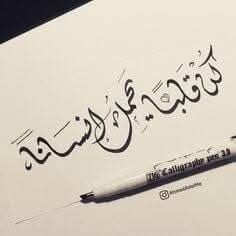 كن قلبًا يحمل إنسانًا
Calligraphy pen 3.0
AhmedAdelMe